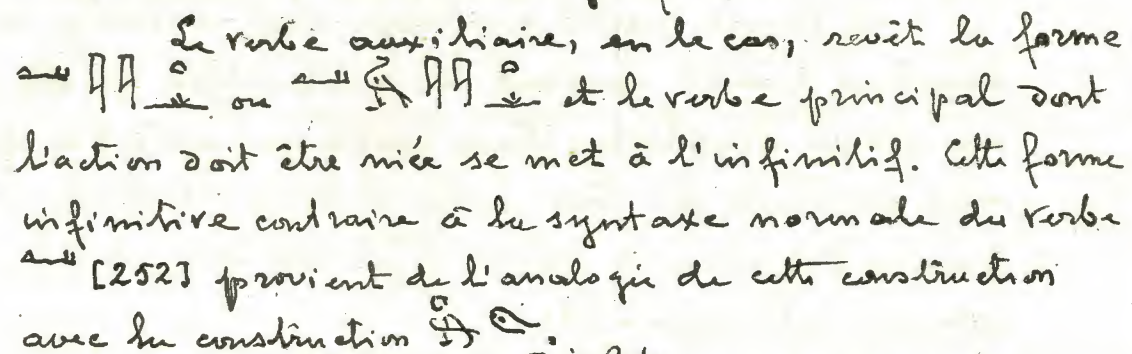 Le verbe auxiliaire, en ce cas, revêt la forme
ou et le verbe principal dont
l'action doit être niée se met à l'infinitif. Cette forme
infinitive contraire à la syntaxe normale du verbe
[252] provient de l'analogie de cette construction
avec la construction .